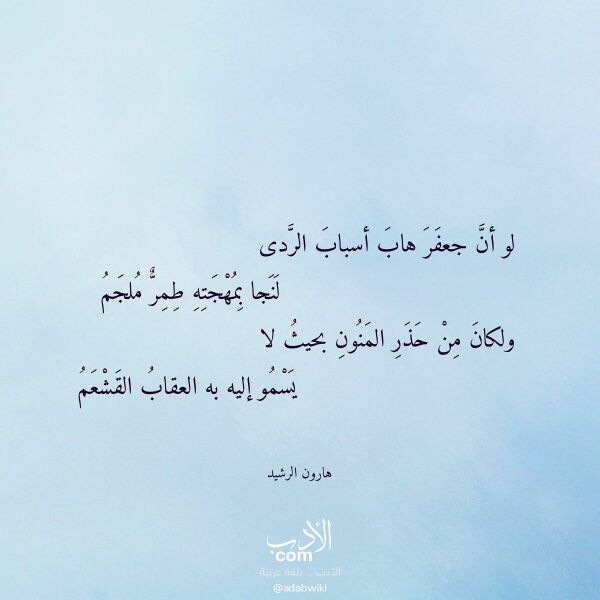 لو أنَّ جعفَرَ هابَ أسبابَ الرَّدى
لَنَجا بِمُهْجَتِهِ طِمِرٌّ مُلجَمُ
ولكانَ مِنْ حَذَرِ المَنُونِ بحيثُ لا
يَسْمُو إليه به العقابُ القَشْعَمُ
هارون الرشيد
الأدب
com
الأدب .. بلغة عربية
@adabwiki